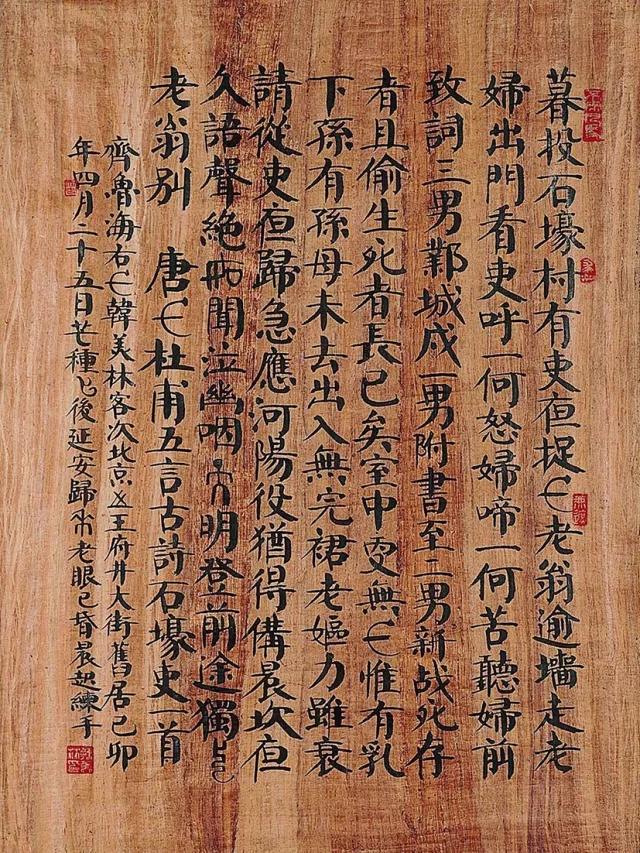 暮投石壕村有吏夜捉人老翁逾墙走老
婦出門看吏呼一何怒婦啼一何苦聽婦前
致詞三男鄴城戍一男附書至二男新战死存
者且偷生死者長已矣室中更無人惟有乳
下孫有孫母未去出入無完裙老嫗力雖衰
請從吏夜歸急應河陽役猶得備晨炊夜
久語聲絕如聞泣幽咽天明登前途獨與
老翁別 唐人杜甫五言古詩石壕吏一首
齊魯海右人韓美林客次北京王府井大街舊居己卯
年四月二十五日芒種以後延安歸來老眼已昏晨起練手